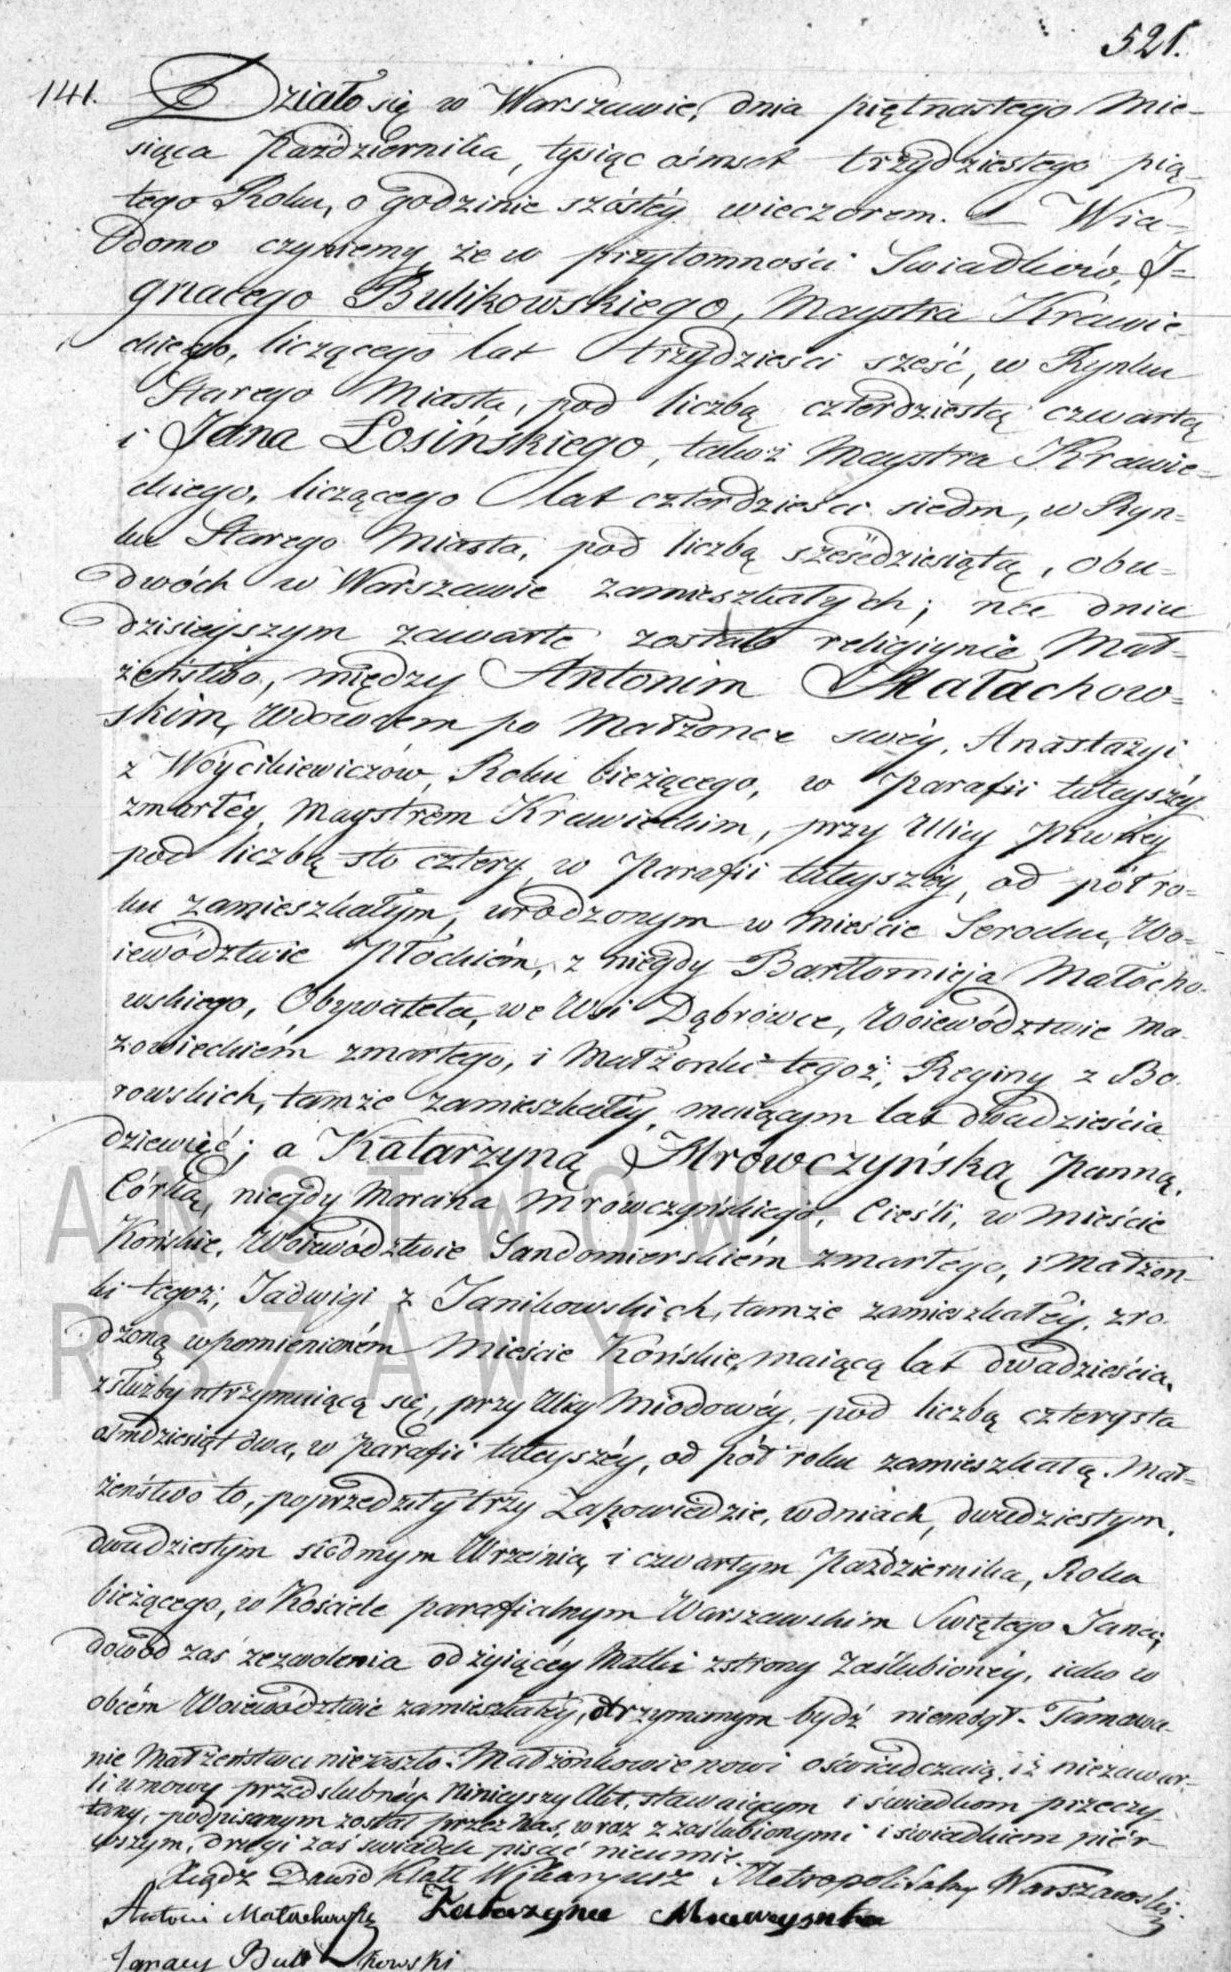 521.
141. Działo się w Warszawie, dnia piętnastego Mie-
siąca Października, tysiąc ośmset trzydziestego pią-
tego Roku, o godzinie szóstéy wieczorem. — Wia-
domo czyniemy, że w przytomności Swiadków, I-
gnacego Bulikowskiego, Maystra Krawie-
ckiego, liczącego lat trzydzieści sześć, w Rynku
Starego Miasta, pod liczbą czterdziestą czwartą
i Jana Łosińskiego, także Maystra Krawie-
ckiego, liczącego lat czterdzieści siedm, w Ryn-
ku Starego Miasta, pod liczbą sześćdziesiątą, obu-
dwóch w Warszawie zamieszkałych; na dniu
dzisieyszym zawarte zostało religiynie Mał-
żeństwo, między Antonim Małachow-
skim, Wdowcem po Małżonce swéy, Anastazyi
z Wóycikiewiczów, Roku bieżącego, w Parafii tuteyszéy
zmarłéy, Maystrem Krawieckim, przy Ulicy Piwnéy
pod liczbą sto cztery, w Parafii tuteyszéy, od pół ro-
ku zamieszkałym, urodzonym w Mieście Serocku, Wo-
iewództwie Płockiém, z niegdy Bartłomieja Małacho-
wskiego, Obywatela, we Wsi Dąbrówce, Woiewództwie Ma-
zowieckiém zmarłego, i Małżonki tegoż, Reginy z Bo-
rowskich, tamże zamieszkałéy, maiącym lat dwadzieścia
dziewięć; a Katarzyną Mrówczyńską Panną,
Córką, niegdy Marcina Mrówczyńskiego, Cieśli, w Mieście
Końskie, Woiewództwie Sandomierskiém zmarłego, i Małżon-
ki tegoż, Jadwigi z Janikowskich, tamże zamieszkałéy, zro-
dzoną wpomienioném Mieście Końskie, maiącą lat dwadzieścia,
z służby utrzymuiącą się, przy Ulicy Miodowéy, pod liczbą czterysta
ośmdziesiąt dwa, w Parafii tuteyszéy, od pół roku zamieszkałą. Mał-
żeństwo to, poprzedziły trzy Zapowiedzie, wdniach, dwudziestym,
dwudziestym siódmym Września, i czwartym Października, Roku
bieżącego, w Kościele parafialnym Warszawskim Swiętego Jana;
dowód zaś zezwolenia od żyiącéy Matki zstrony Zaślubionéy, iako w
obcém Woiewództwie zamieszkałéy, otrzymanym bydź niemógł. Tamowa-
nie Małżeństwa niezaszło. Małżonkowie nowi oświadczaią, iż niezawar-
li umowy przedślubnéy. Ninieyszy Akt, stawaiącym i świadkom przeczy-
tany, podpisanym został przez Nas, wraz z zaślubionymi i świadkiem piér-
wszym, drugi zaś świadek pisać nieumie.
Xiądz Dawid Wikaryusz Metropolitalny Warszawski;
Antoni Małachowski Katarzyna Mrowczynska
Ignacy Bulikowski
ANSTWOWE
RSZAWY